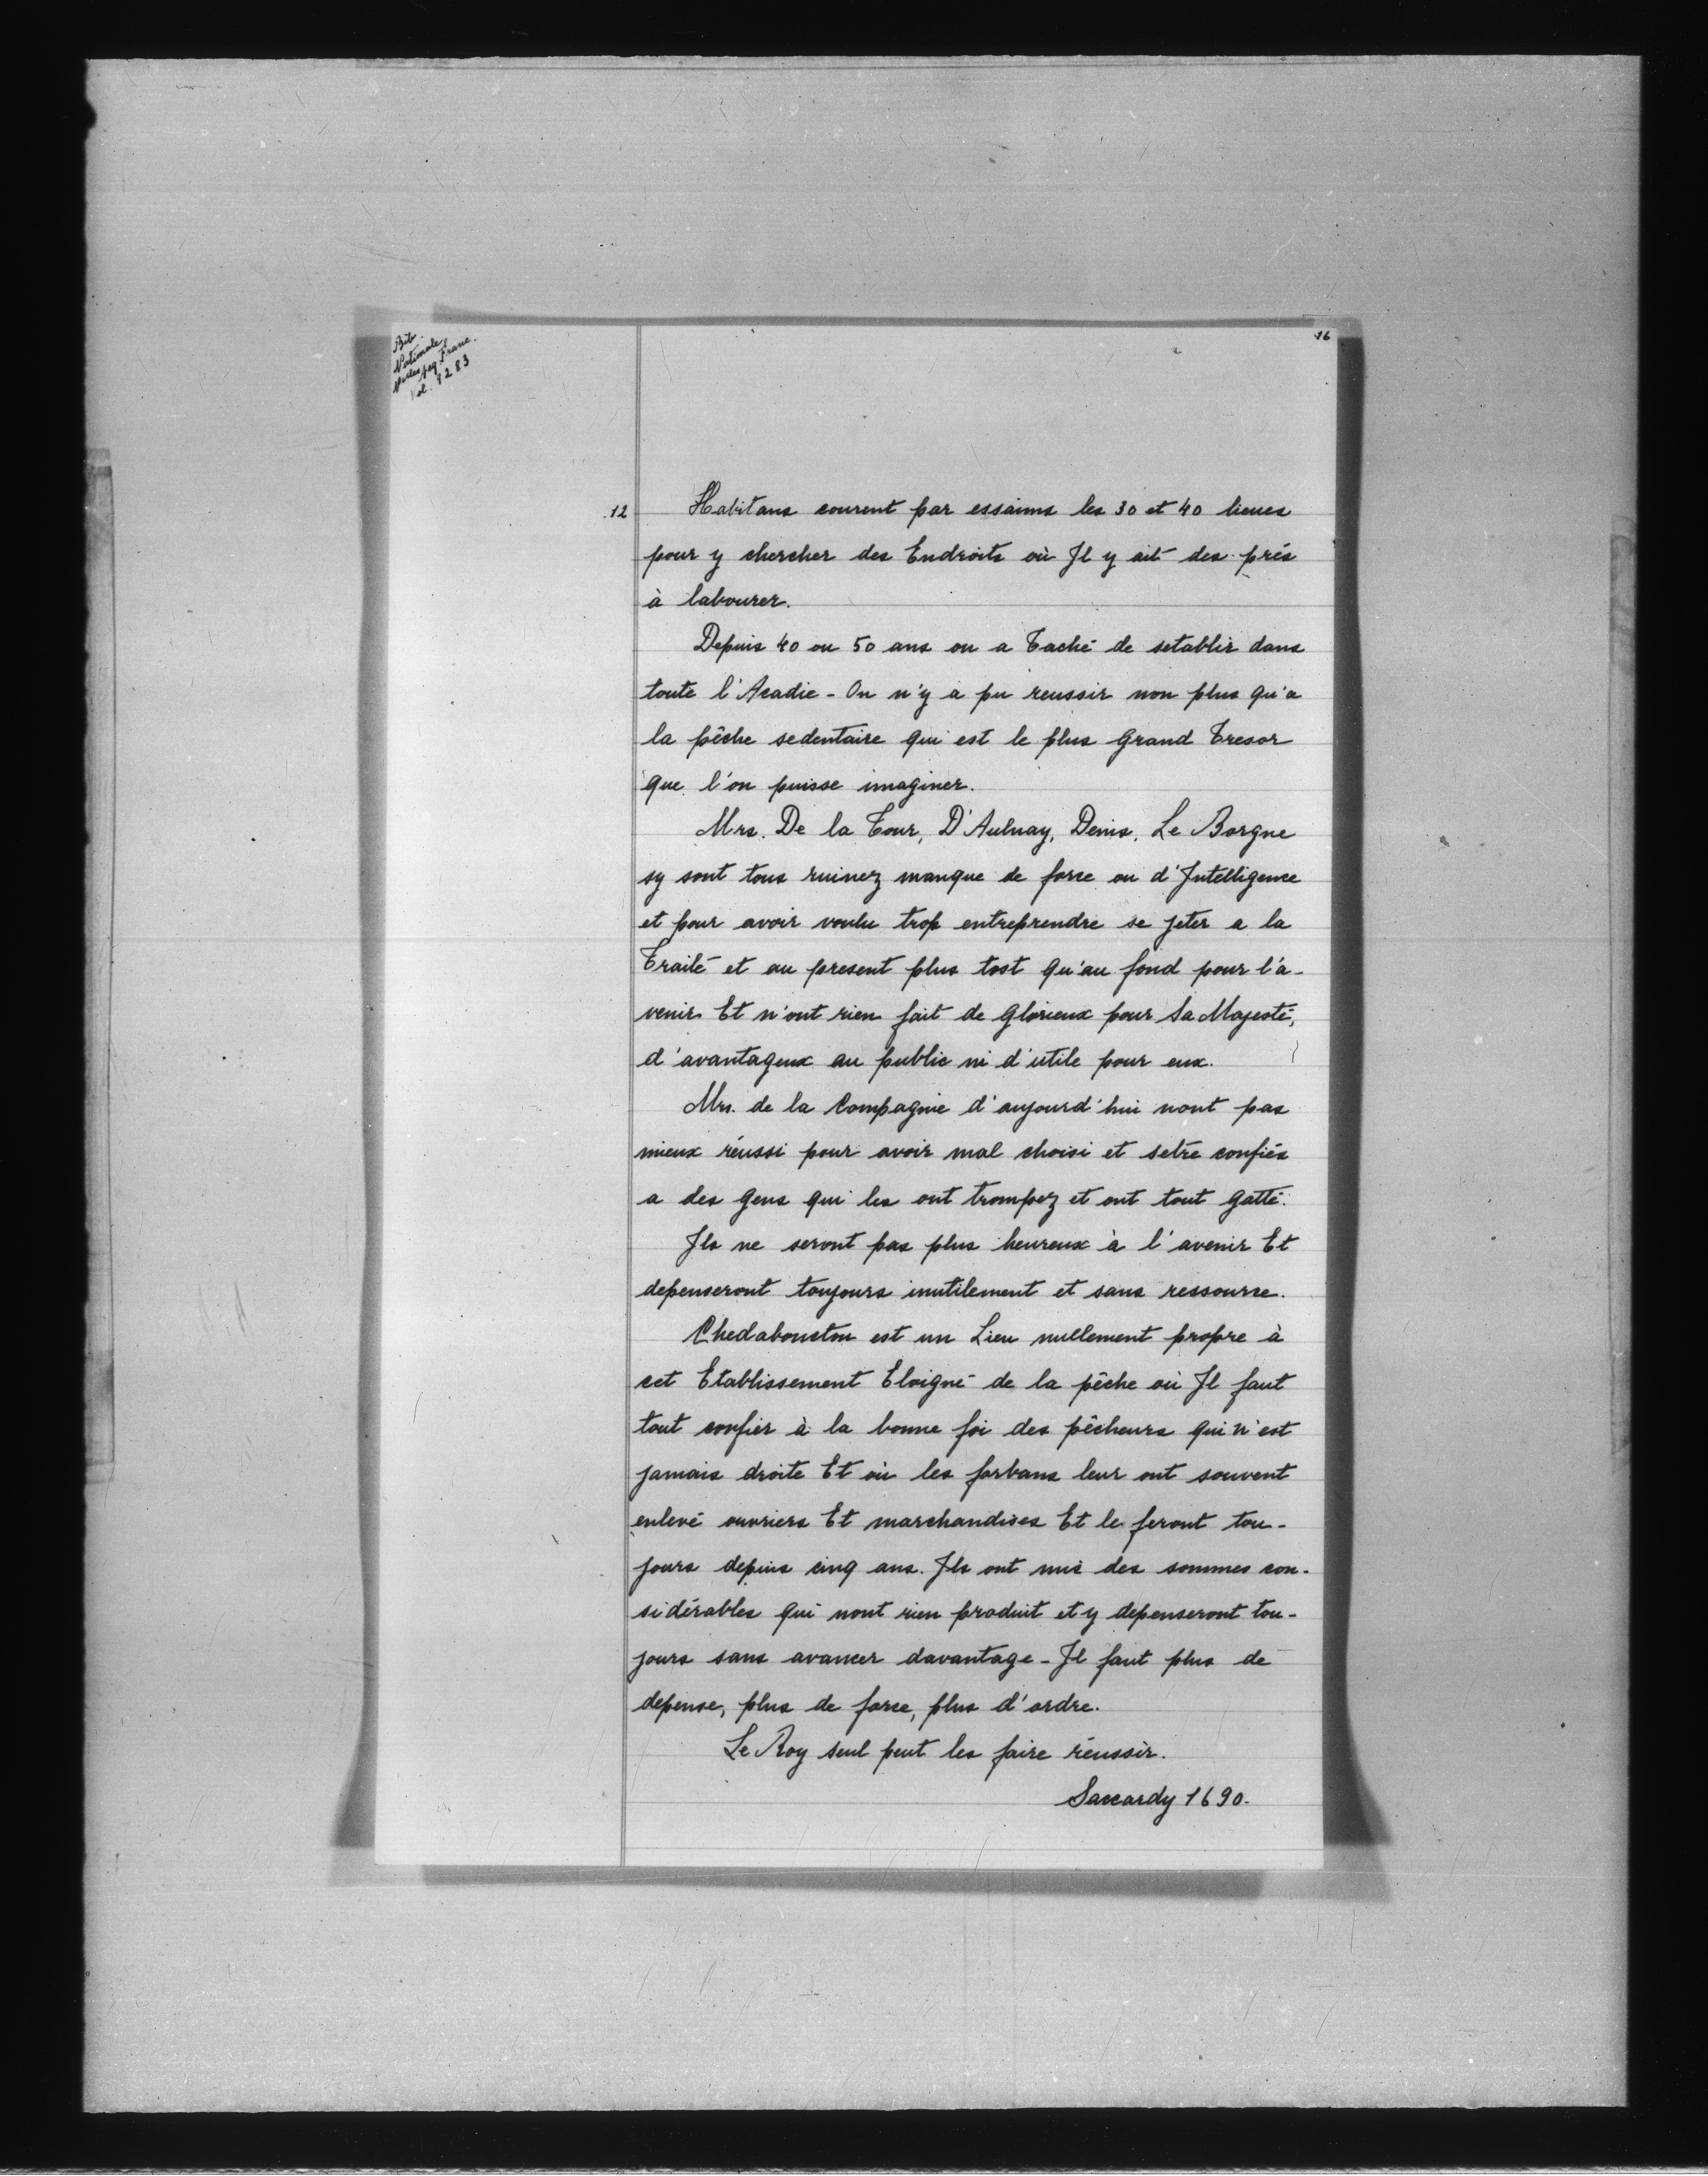 Bib.
Nationale
acq. Franc.
Vol. 9283
16
12 Habitans courent par essaims les 30 et 40 lieues
pour y chercher des Endroits où Il y ait des prés
à labourer.
Depuis 40 ou 50 ans on a Taché de setablir dans
toute l'Acadie - On n'y a pu reussir non plus qu'a
la pêche sedentaire qui est le plus Grand Tresor
que l'on puisse imaginer.
Mrs. De la Tour, D'Aulnay, Denis, Le Borgne
sy sont tous ruinez manque de force ou d'Intelligence
et pour avoir voulu trop entreprendre se jeter a la
Traité et au present plus tost qu'au fond pour l'a-
venir Et n'ont rien fait de Glorieux pour Sa Majesté,
d'avantageux au public ni d'utile pour eux.
Mrs. de la Compagnie d'aujourd'hui nont pas
mieux réussi pour avoir mal choisi et setre confiés
a des Gens qui les ont trompez et ont tout Gatté.
Ils ne seront pas plus heureux à l'avenir Et
depenseront toujours inutilement et sans ressource.
Chedabouctou est un Lieu nullement propre à
cet Etablissement Eloigné de la pêche où Il faut
tout confier à la bonne foi des pêcheurs qui n'est
jamais droite Et où les forbans leur ont souvent
enlevé ouvriers Et marchandises Et le feront tou-
jours depuis cinq ans. Ils ont mis des sommes con-
sidérables qui nont rien produit et y depenseront tou-
jours sans avancer davantage - Il faut plus de
depense, plus de force, plus d'ordre.
Le Roy seul peut les faire réussir.
Saccardy 1690.